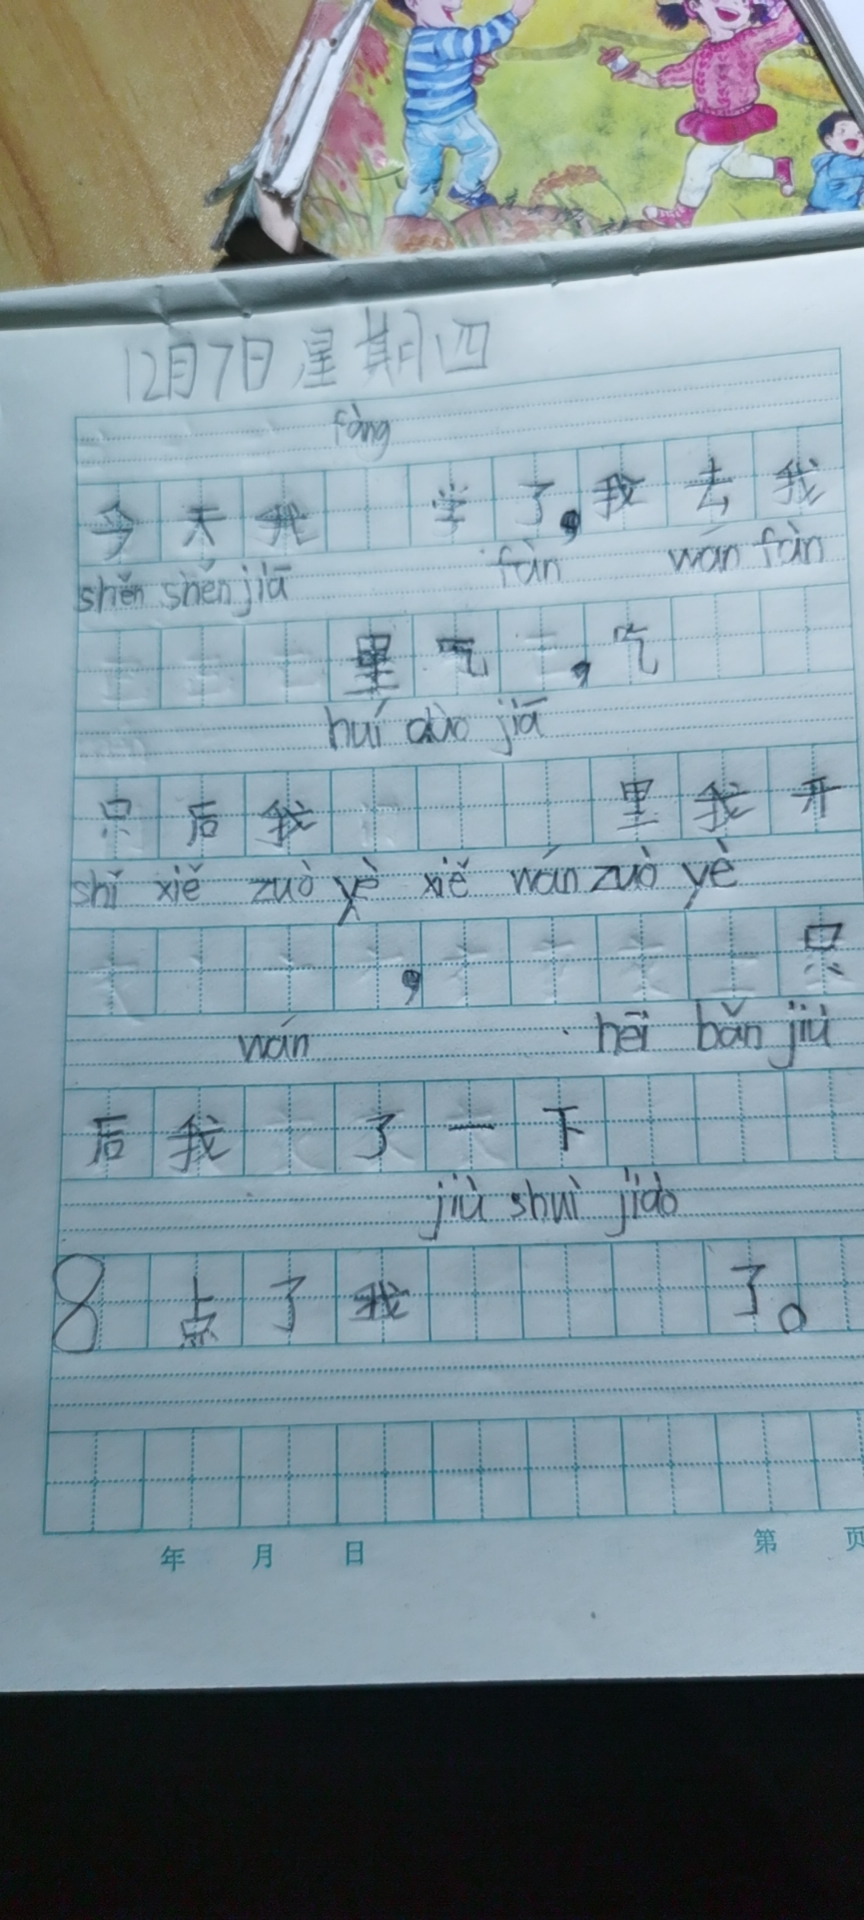 12月7日星期四
fàng
今天我 学了,我去我
shěn shěn jiā fàn wán fàn
里吃 ,吃
huí dào jiā
只后我 里我开
shǐ xiě zuò yè xiě wán zuò yè
, 只
wán hēi bǎn jiù
后我 了一下
jiù shuì jiào
8点了我 了。
年 月 日 第 页